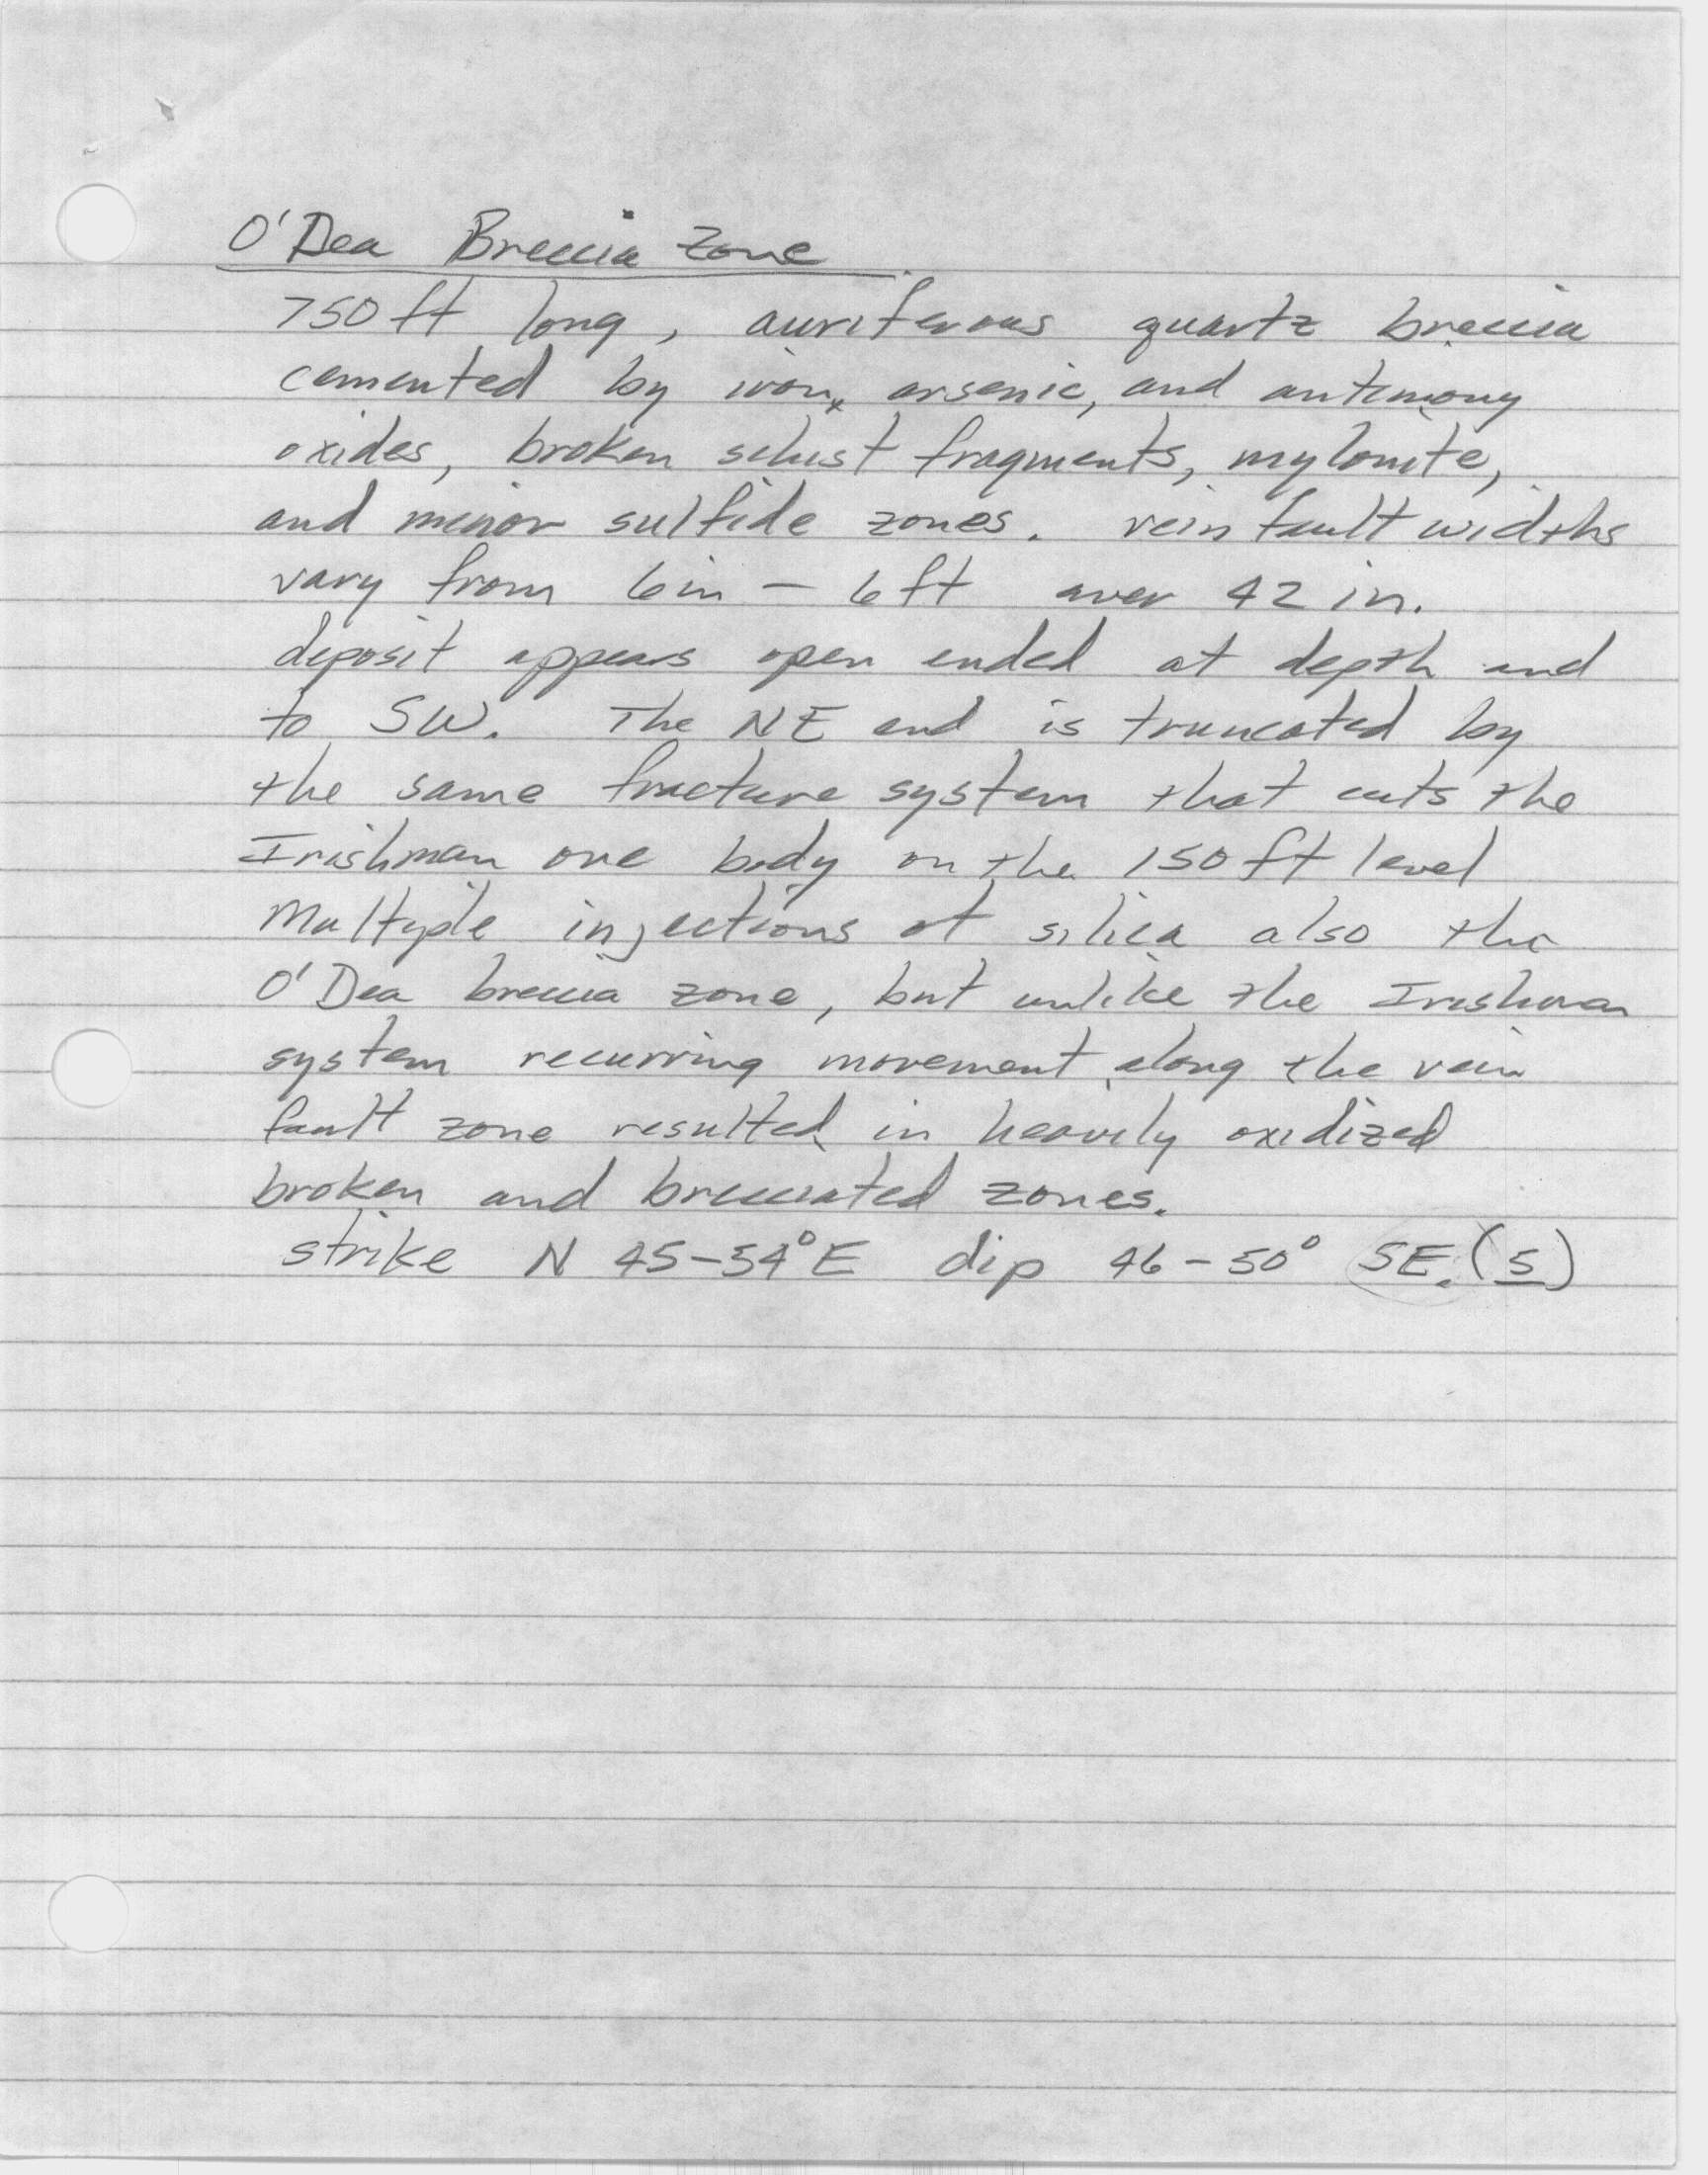 O'Dea Breccia Zone
750 ft long, auriferous quartz breccia
cemented by iron, arsenic, and antimony
oxides, broken schist fragments, mylonite,
and minor sulfide zones. vein fault widths
vary from 6in - 6ft aver 42 in.
deposit appears open ended at depth and
to SW. The NE end is truncated by
the same fracture system that cuts the
Irishman ore body on the 150 ft level
Multyple injections of silica also the
O'Dea breccia zone, but unlike the Irishman
system recurring movement along the vein
fault zone resulted in heavily oxidized
broken and brecciated zones.
strike N 45-54°E dip 46-50° SE. (5)